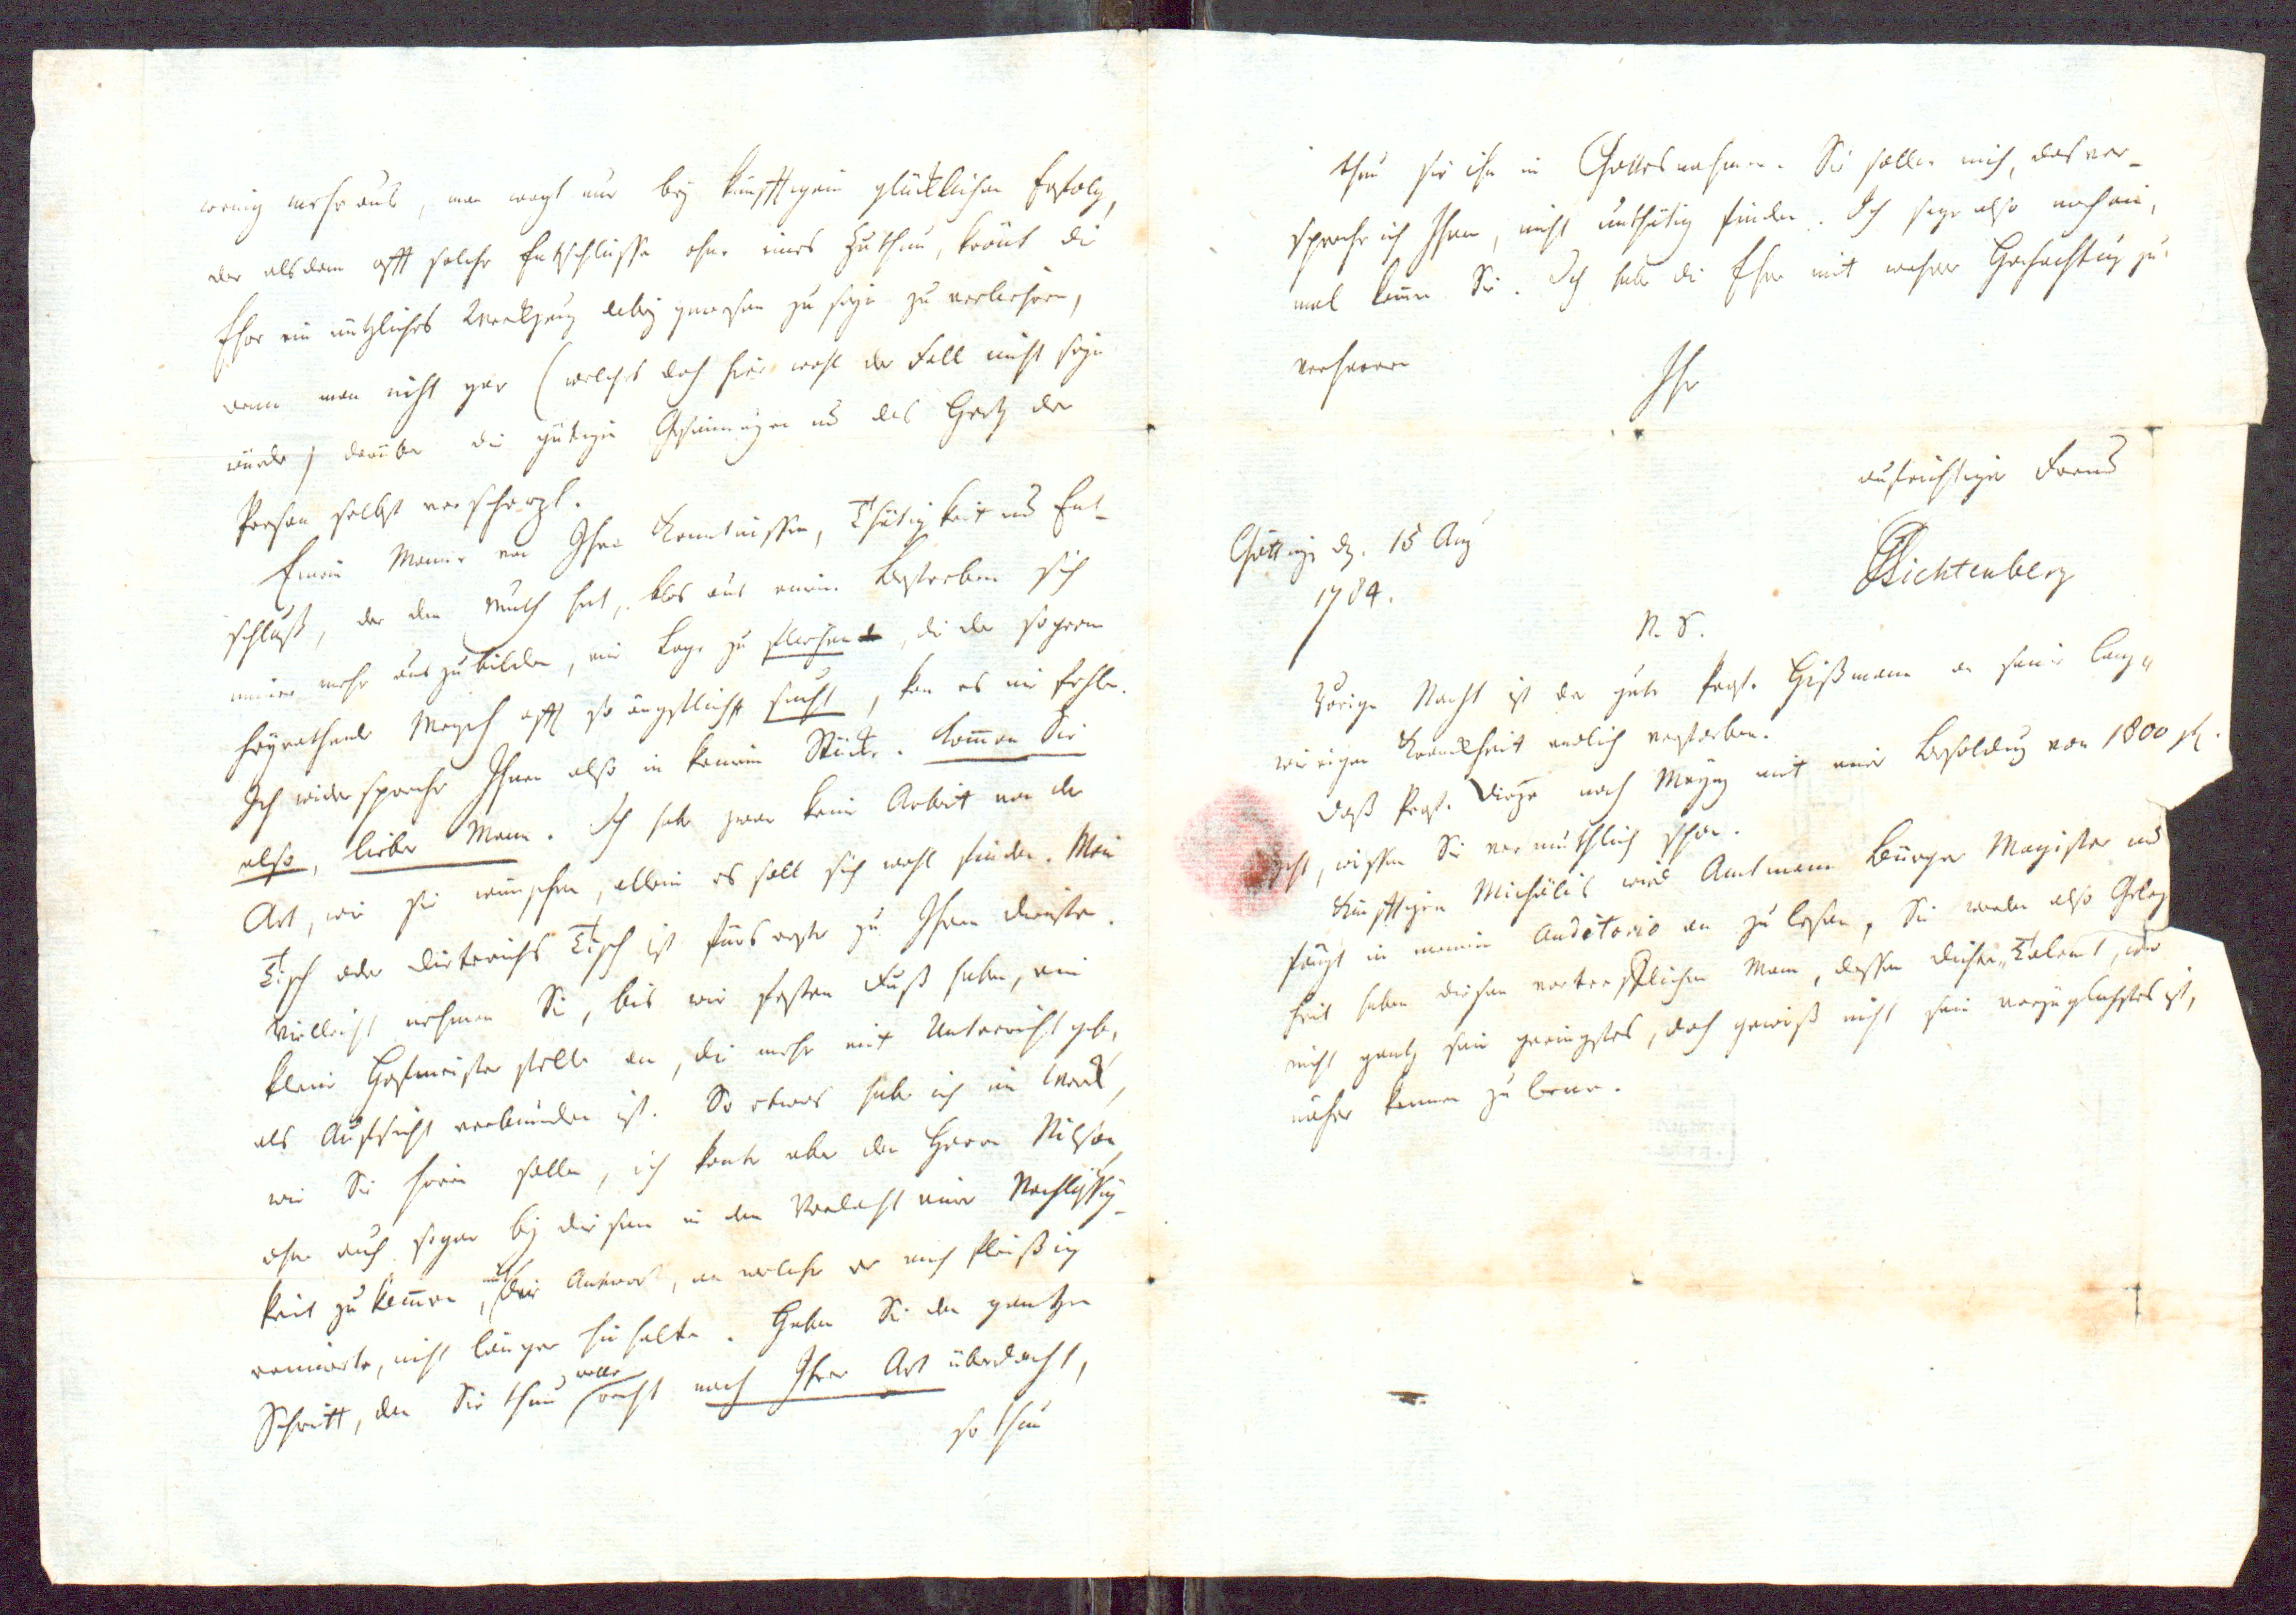 wenig mehr aus, man wagt nur bey künfftigem glücklichen Erfolg,
der alsdann offt solche Entschlüsse ohne eines Zuthun, krönt die
Ehre ein nützliches Werckzeug dabey gewesen zu seyn zu verliehren,
wenn man nicht gar (welches doch hier wohl der Fall nicht seyn
würde) darüber die gütigen Gesinnungen und das Hertz der
Person selbst verscherzt.
Einem Manne von Ihren Kenntnissen, Thätigkeit und Ent-
schluß, der den Muth hat, blos aus einem Bestreben sich
immer mehr auszubilden, eine Lage zu fliehen, die der so gern
heyrathende Mensch offt so ängstlich sucht, kan es nie fehlen.
Ich widerspreche Ihnen also in keinem Stücke. Kommen Sie
also, lieber Mann. Ich habe zwar keine Arbeit von der
Art, wie sie wünschen, allein es soll sich wohl finden. Mein
Tisch oder Dieterichs Tisch ist fürs erste zu Ihren Diensten.
Vielleicht nehmen Sie, bis wir festen Fuß haben, eine
kleine Hofmeisterstelle an, die mehr mit Unterricht geben,
als Aufsicht verbunden ist. So etwas habe ich im Werck,
wie Sie hören sollen, ich konte aber den Herrn Nilson,
ohne auch sogar bey diesem in den Verdacht einer Nachlässig-
keit zu kommen, mit der Antwort, an welche er mich fleißig
erinnerte, nicht länger hinhalten. Haben Sie den gantzen
Schritt, den Sie thun wollen recht nach Ihrer Art überdacht,
so thun
thun sie ihn in Gottesnahmen. Sie sollen mich, das ver-
spreche ich Ihnen, nicht unthätig finden. Ich sage also noch ein-
mal kommen Sie. Ich habe die Ehre mit wahrer Hochachtung zu
verharren
Ihr
aufrichtiger Freund
GCLichtenberg
Göttingen den. 15 Aug
1784.
N. S.
Vorige Nacht ist der gute Prof. Hißmann an seiner lang-
wierigen Kranckheit endlich verstorben.
Daß Prof. Dieze nach Maynz mit einer Besoldung von 1800 fl.
geht, wissen Sie vermuthlich schon.
Künfftigen Michaelis wird Amtmann Bürger Magister und
fängt in meinem Auditorio an zu lesen, Sie werden also Gelegen
heit haben diesen vortrefflichen Mann, dessen Dichter-Talent, wo
nicht gantz sein geringstes, doch gewiß nicht sein vorzüglichstes ist,
näher kennen zu lernen.